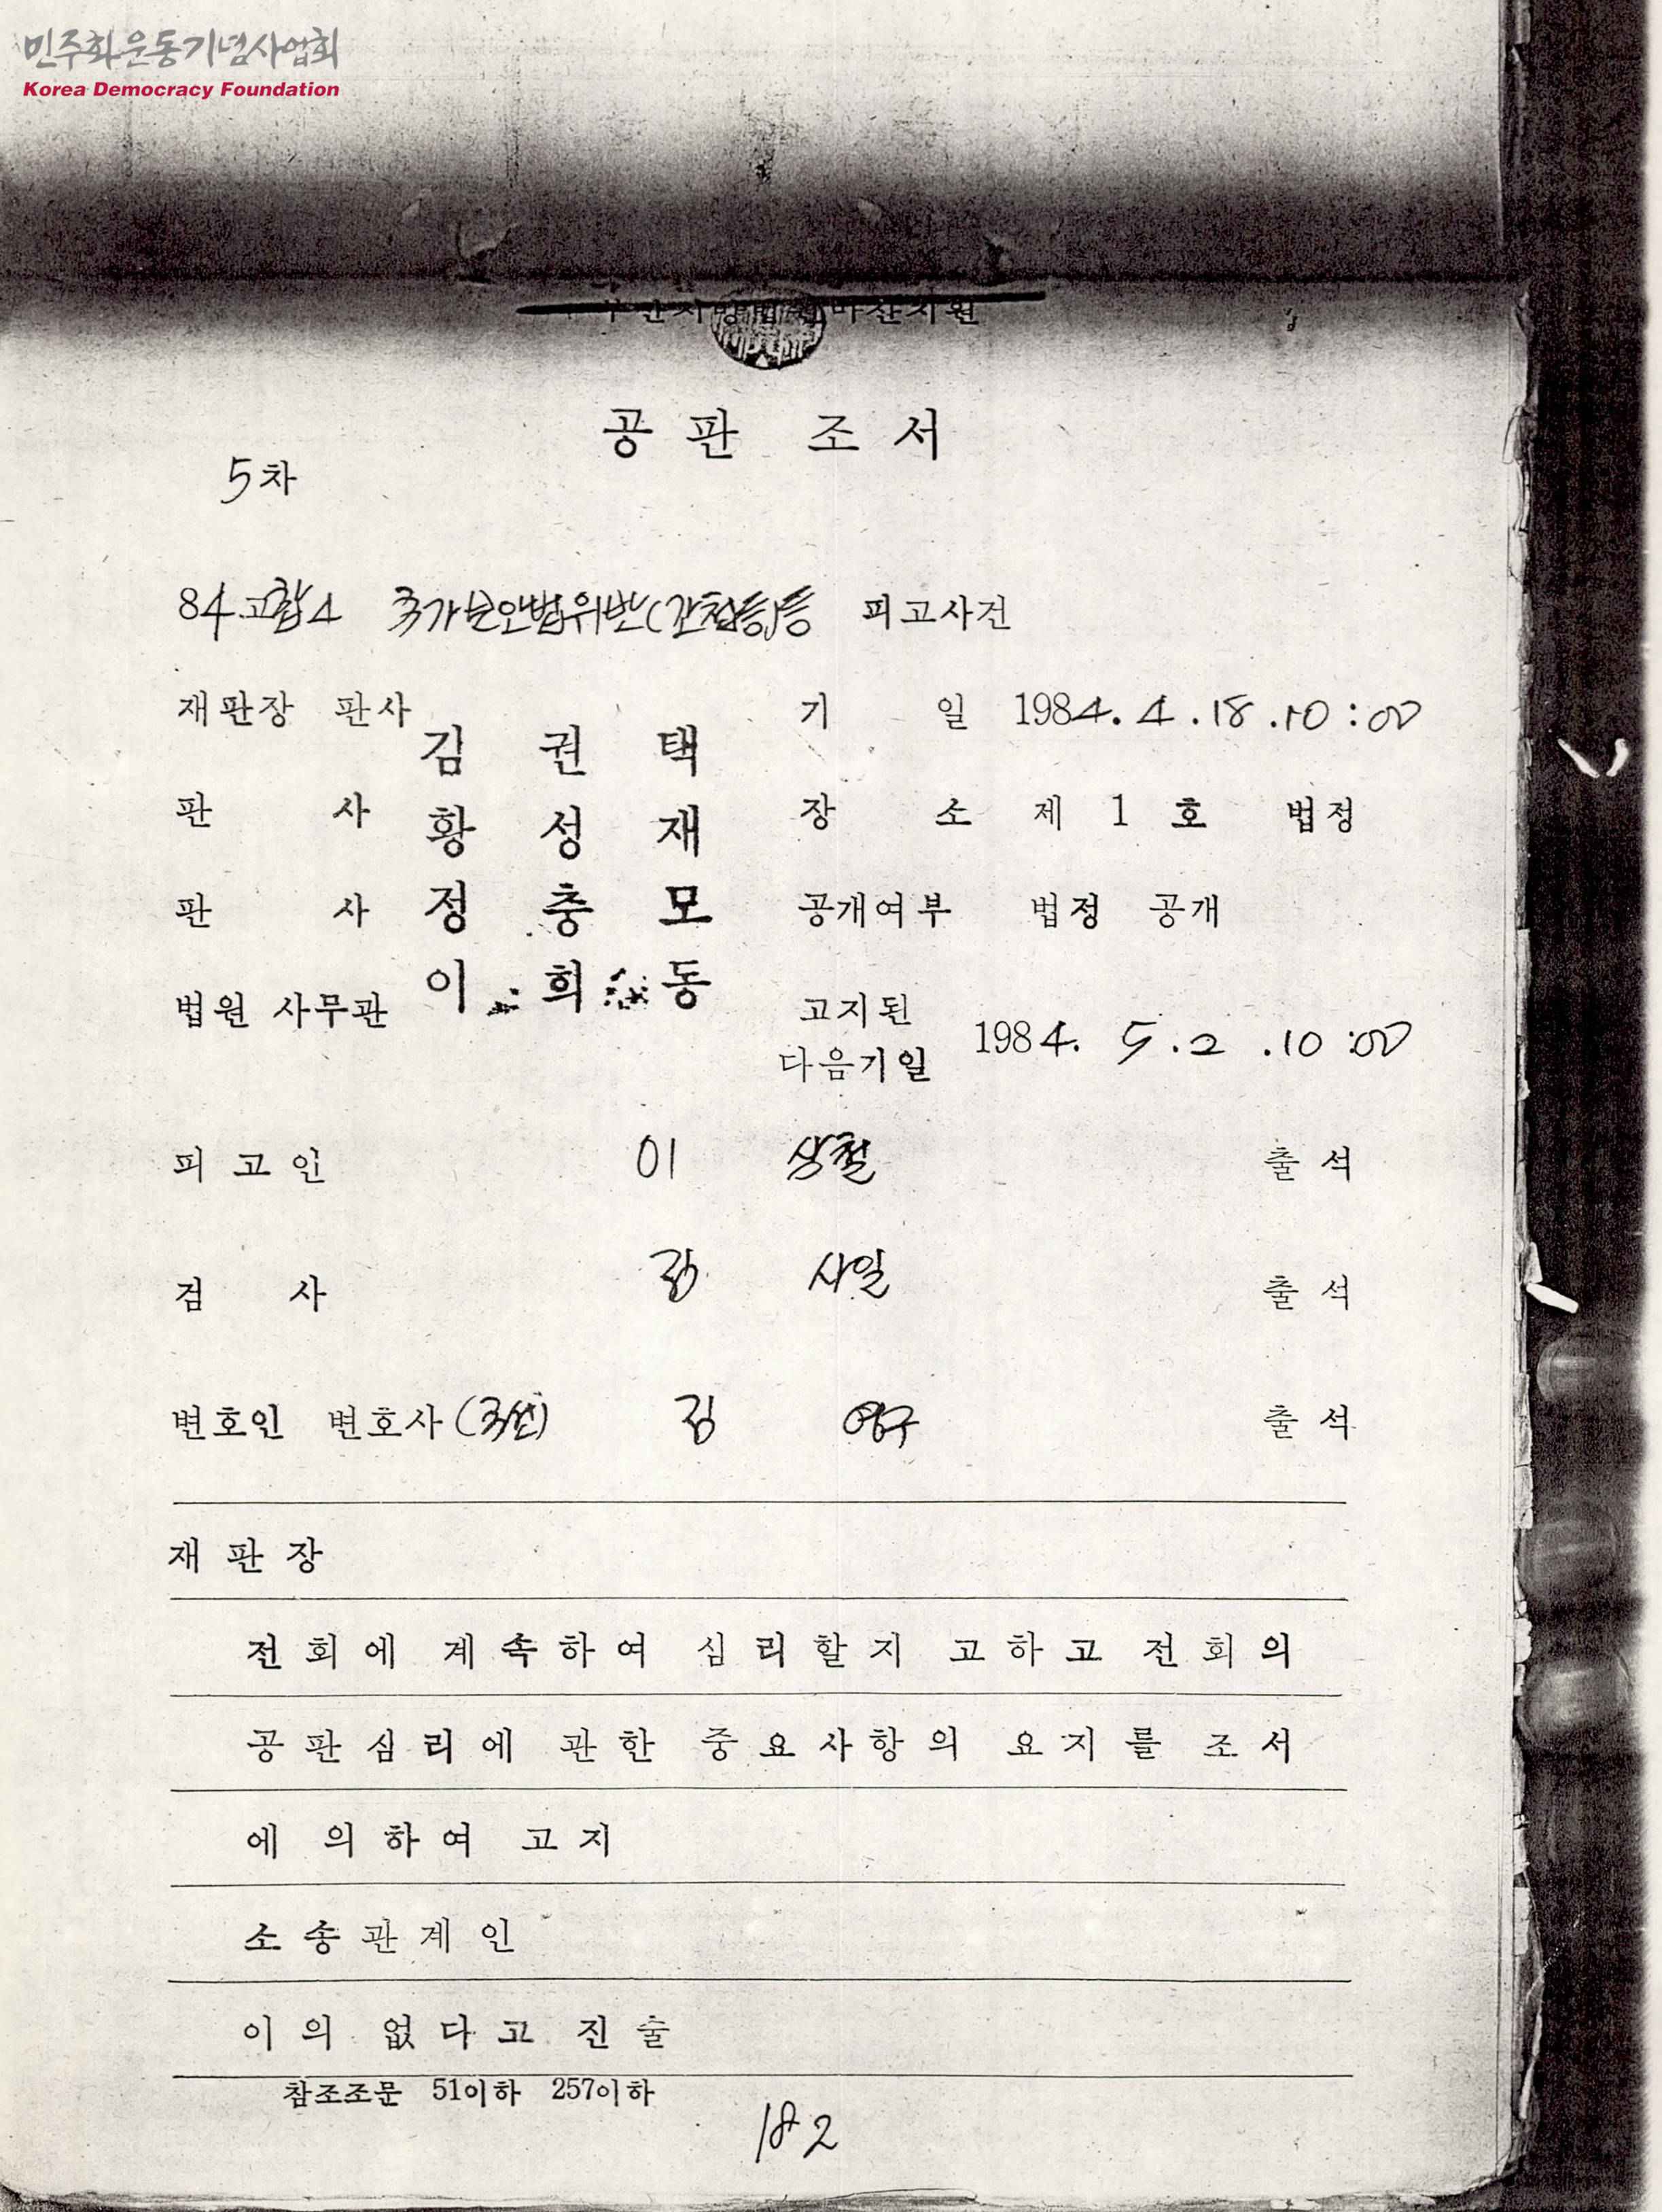 민주화운동기념사업회
Korea Democracy Foundation
부산지방법원마산지원
공판 조서
5차
84.고합4 국가보안법위반(간첩등)등 피고사건
재판장 판사 김권택 기일 1984. 4. 18. 10:00
판사 황성재 장소 제1호 법정
판사 정충모 공개여부 법정 공개
법원 사무관 이희동 고지된
다음기일 1984. 5. 2. 10:00
피고인 이 상철 출석
검사 사일 출석
변호인 변호사(국선) 김 영구 출석
재판장
전회에 계속하여 심리할지 고하고 전회의
공판심리에 관한 중요사항의 요지를 조서
에 의하여 고지
소송관계인
이의 없다고 진술
참조조문 51이하 257이하
182